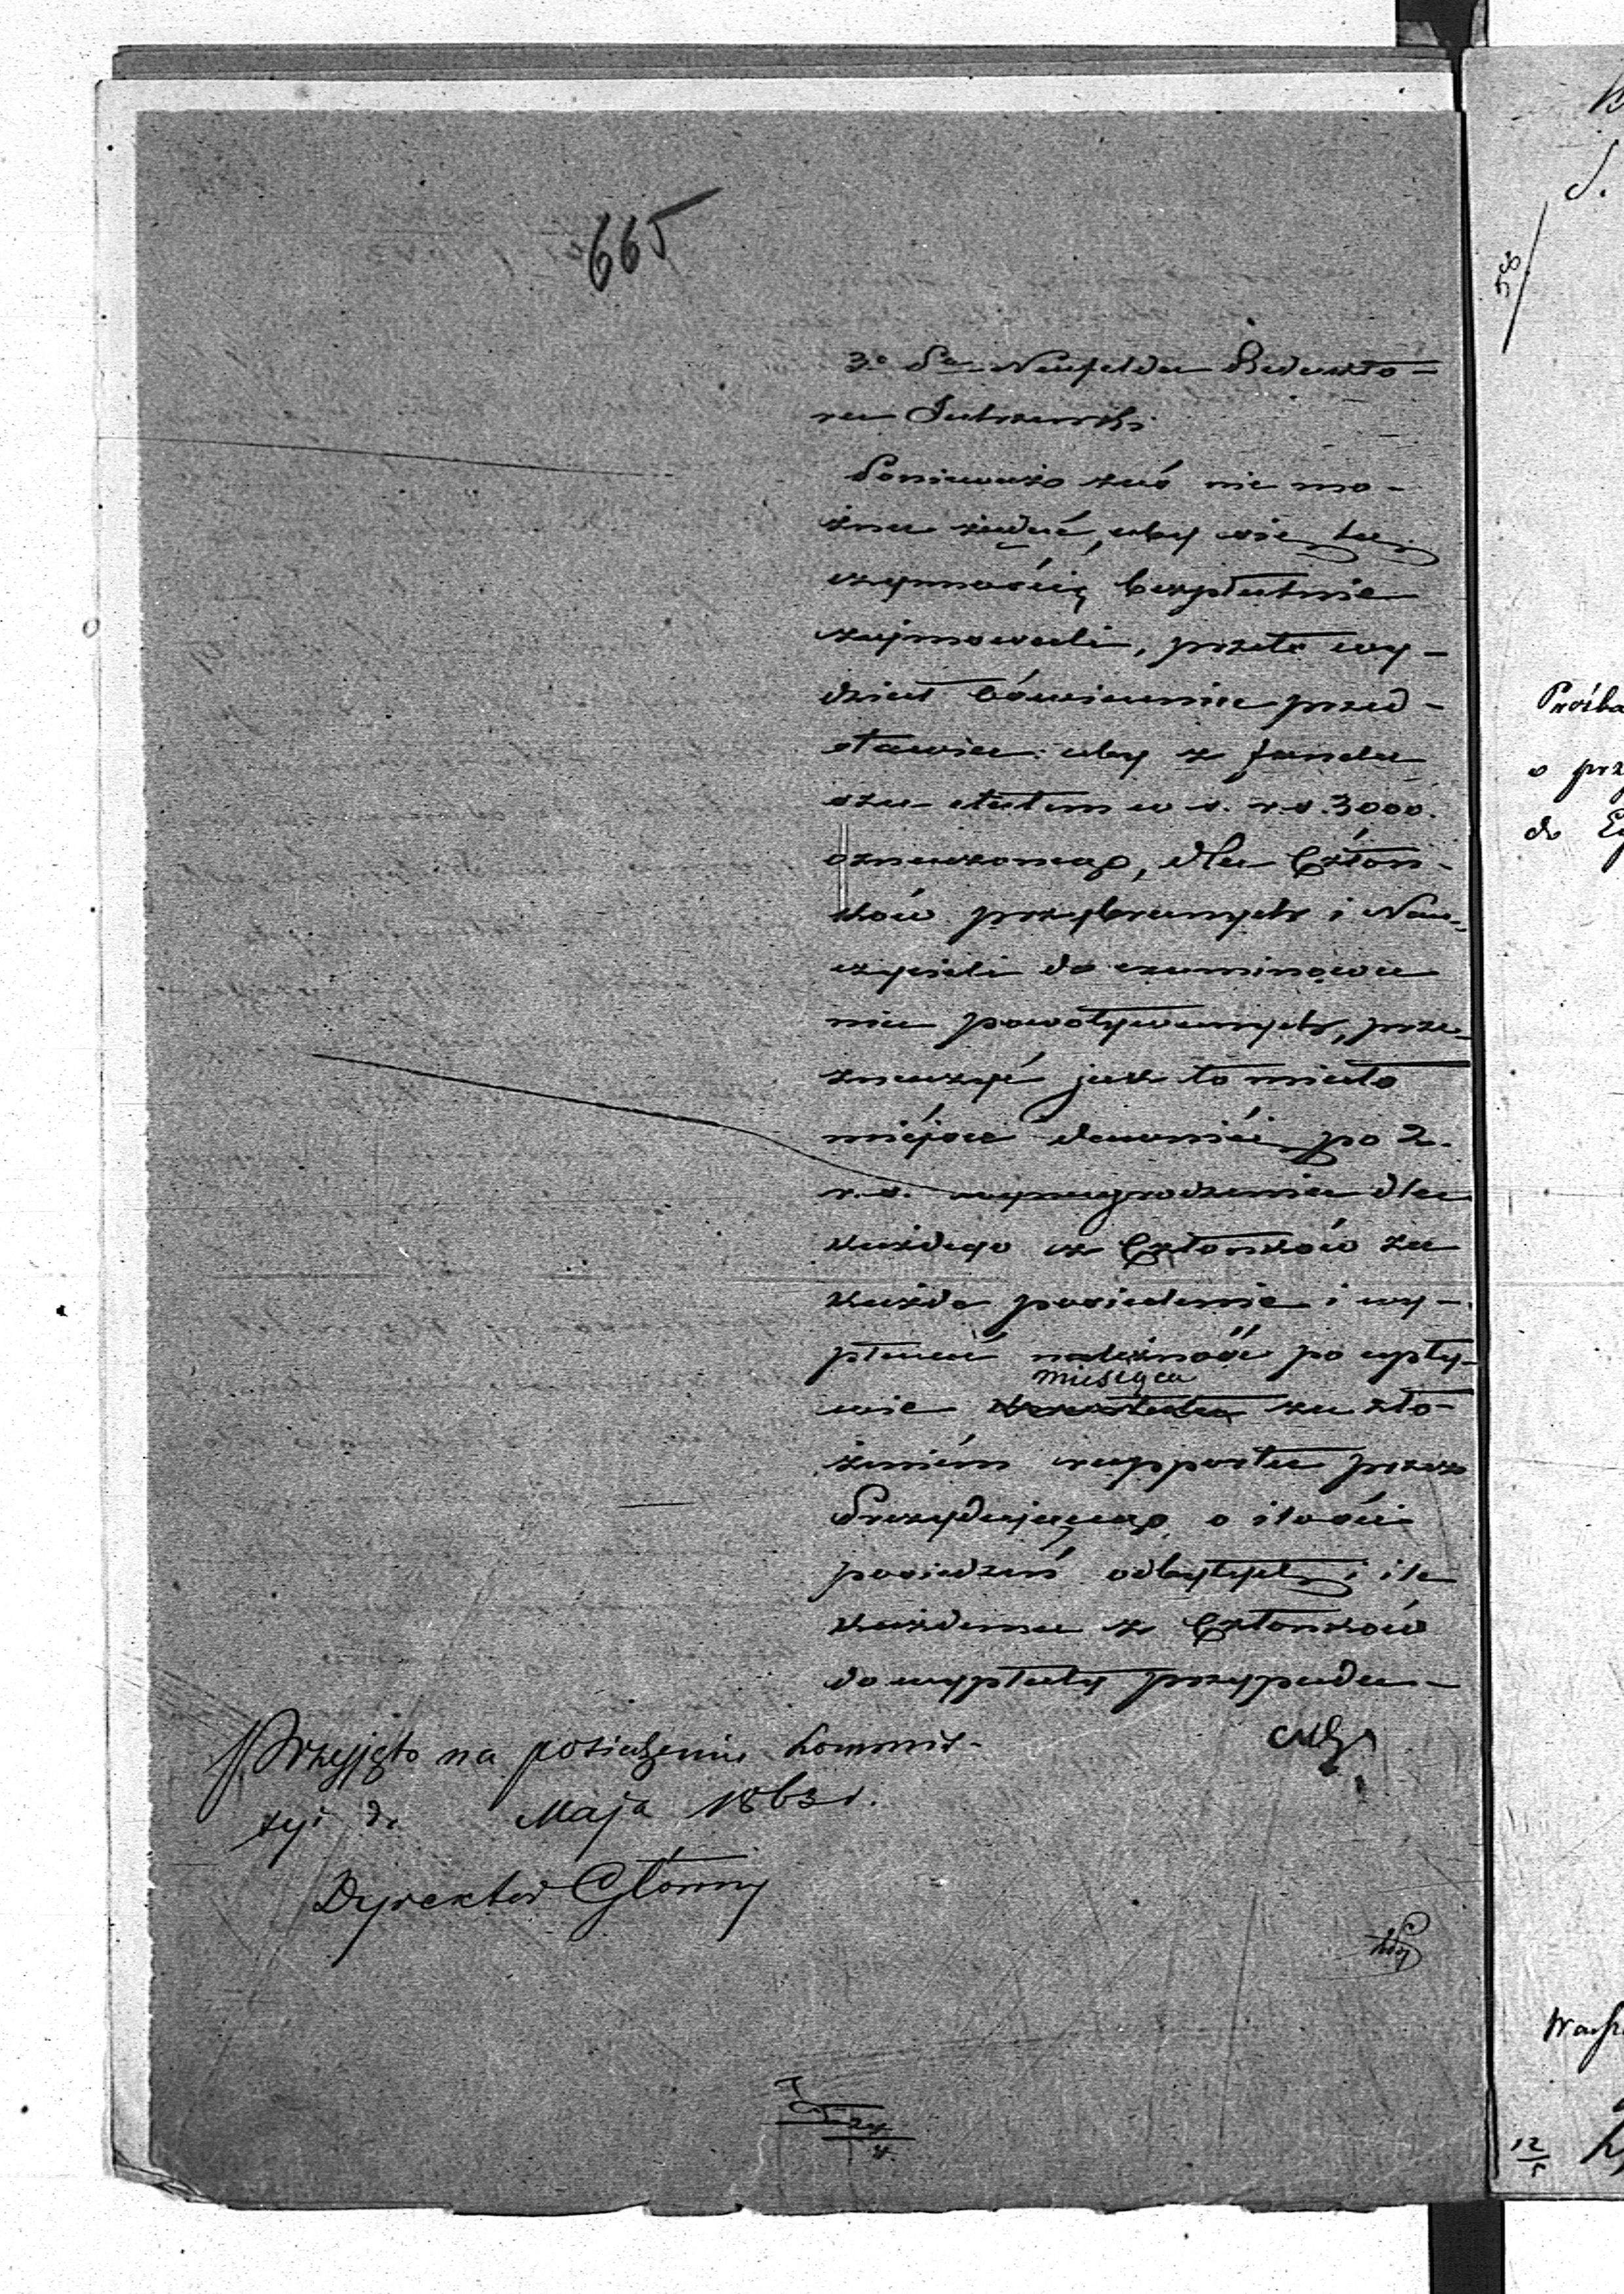 665
3o Pa Neufelda Redakto-
ra Jutrzenki
Ponieważ zaś nie mo-
żna żądać, aby się tą
czynnością bezpłatnie
zajmowali, przeto wy-
dział Oświecenia przed-
stawia: aby z fundu
szu etatem w s. r.s. 3000.
oznaczonego, dla Człon-
ków przybranych i Nau-
czycieli do examinowa
nia powoływanych, prze
znaczyć jak to miało
miéjsce dawniéj po 2.
r.s. wynagrodzenia dla
każdego z Członków za
każde posiedzenie i wy-
płacać należność po upły-
miesiąca
wie kwartału za zło-
żeniém rapportu przez
Prezydującego o ilości
posiedzeń odbytych i ile
każdemu z Członków
do wypłaty przypada-
Przyjęto na posiedzeniu Kommis-
syi d. Maja 1863 r.
Dyrektor Główny
58
Prośba
o prz
do
12